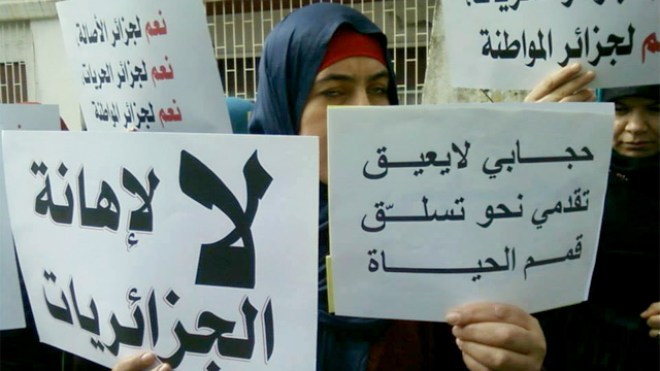 نعم لجزائر الأصالة
نعم لجزائر الحريات
نعم لجزائر المواطنة
نعم لجزائر المواطنة
لا لإهانة
الجزائريات
حجابي لايعيق
تقدمي نحو تسلّق
قمم الحياة